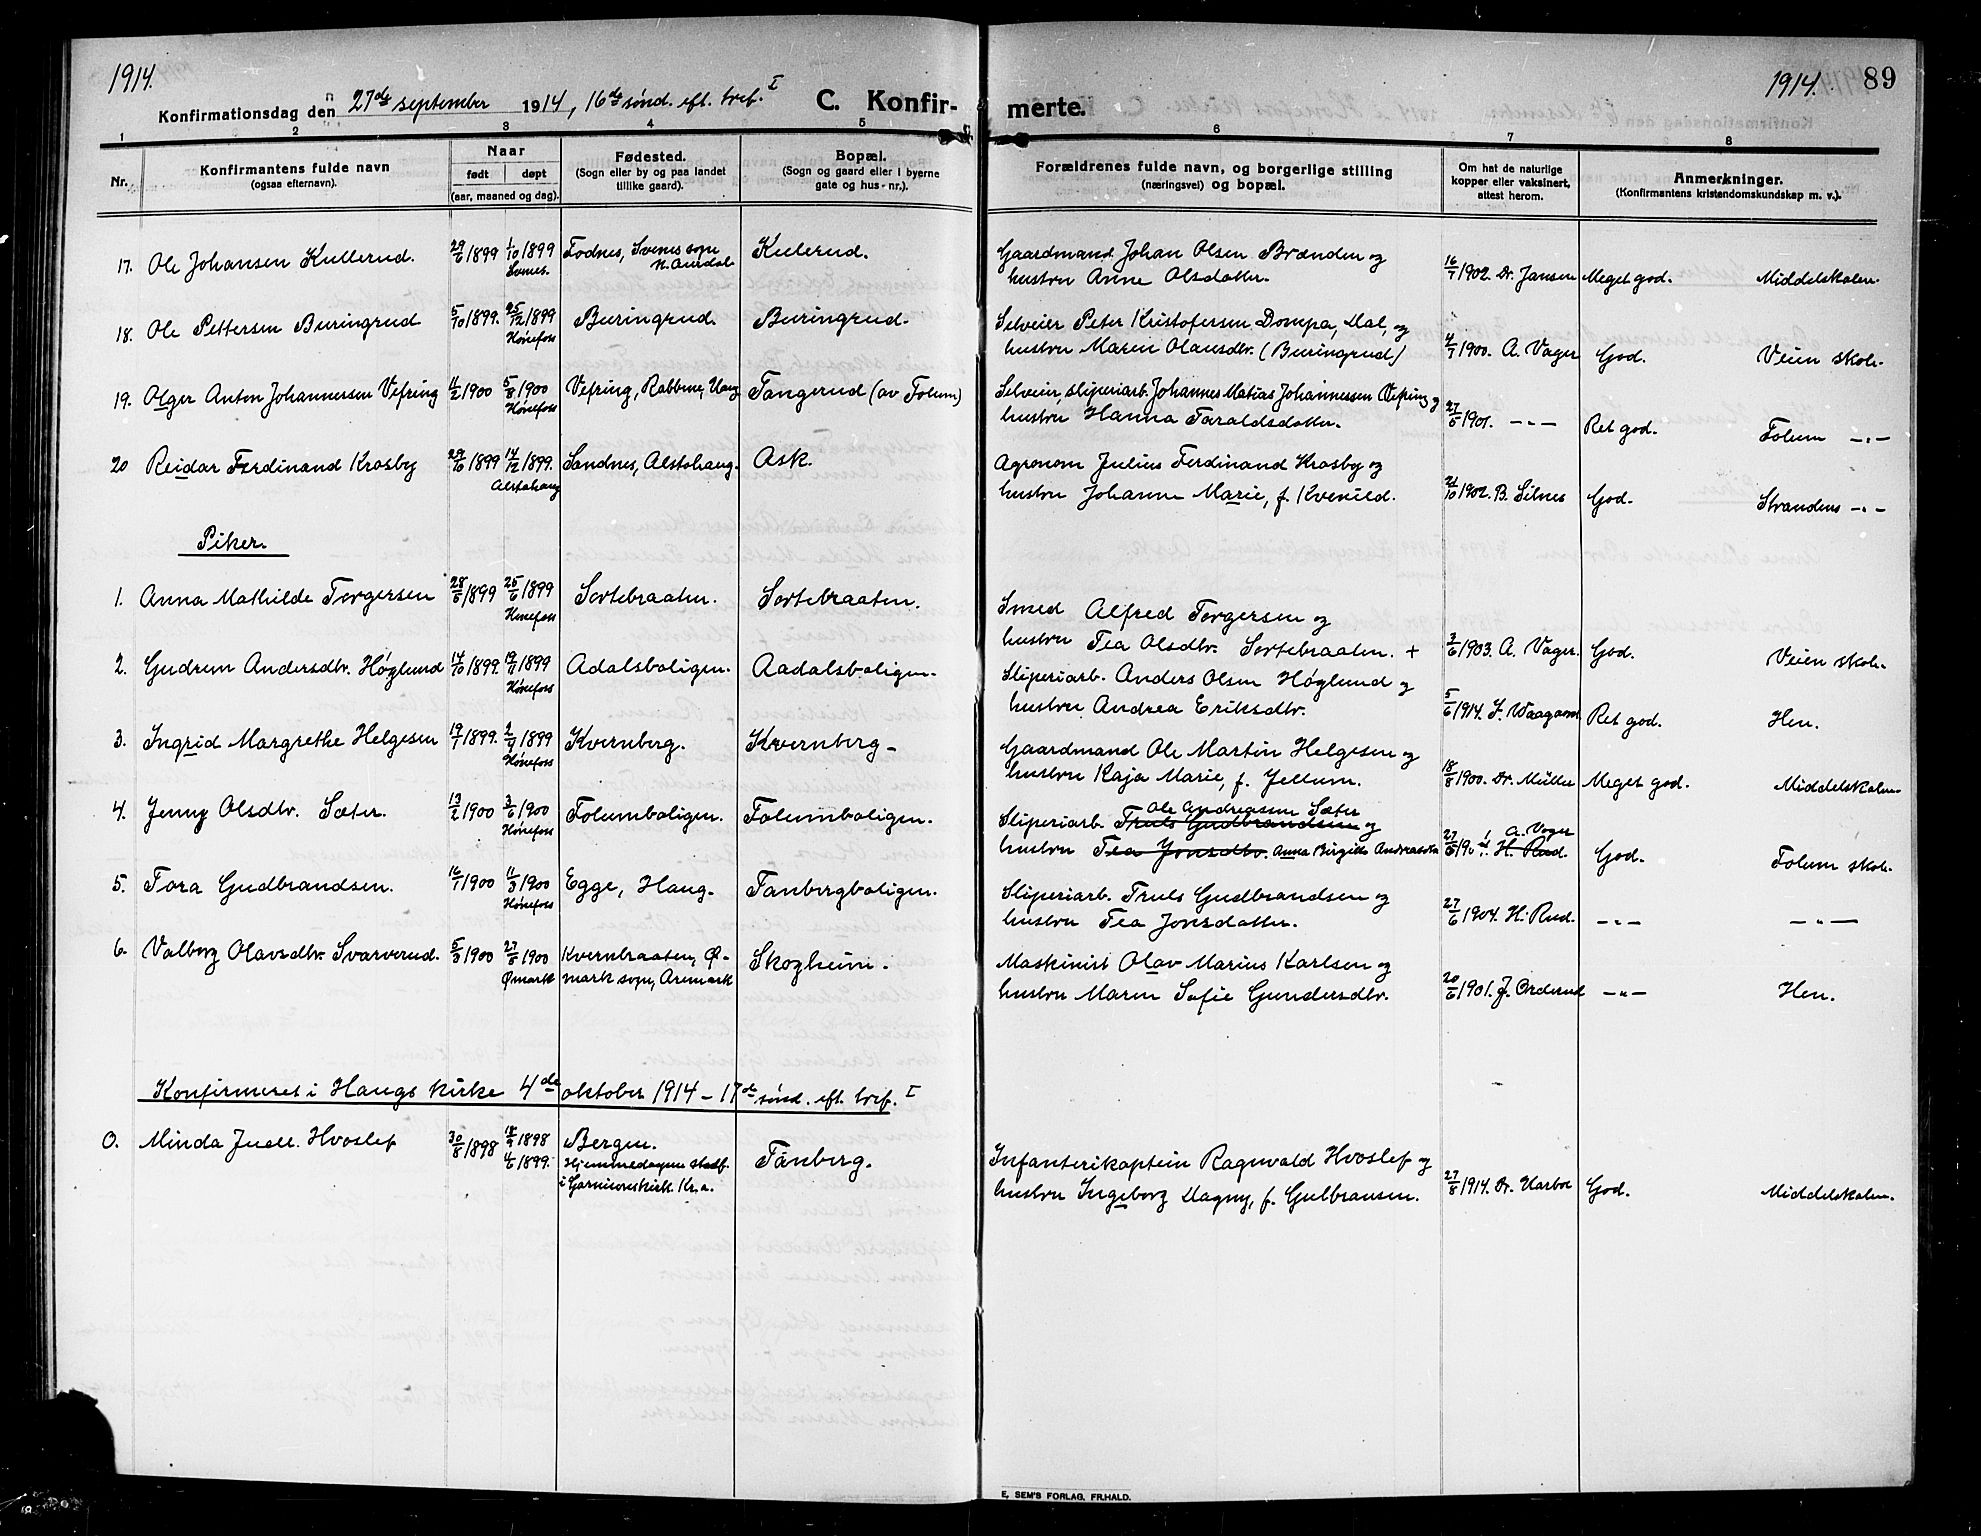 1914.
Konfirmationsdag den 27de september 1914, 16de sønd. eft. tref. I C. Konfir-
1 2 3 4 5
Nr. Konfirmantens fulde navn (ogsaa efternavn). Naar født døpt (aar, maaned og dag). Fødested. (Sogn eller by og paa landet tillike gaard). Bopæl. (Sogn og gaard eller i byerne gate og hus-nr.).
17. Ole Johansen Kullerud. 29/6 1899 1/10 1899 Svenes. Fodnes, Svenes sogn N. Aurdal Kulerud.
18. Ole Pettersen Buringrud 5/10 1899. 25/12 1899 Hønefoss Buringrud. Buringrud.
19. Olger Anton Johannessen Vefring 4/2 1900 5/8 1900 Hønefoss Vefring, Rabbene, Haug Tangerud (av Folum)
20 Reidar Ferdinand Krosby 29/6 1899 17/12 1899. Alstahaug Sandnes, Alstahaug. Ask.
Piker.
1. Anna Mathilde Torgersen 28/5 1899 25/6 1899 Hønefoss Sortebraaten. Sortebraaten.
2. Gudrun Andersdtr. Høglund 14/10 1899. 19/11 1899 Hønefoss Adalsboligen. Aadalsboligen.
3. Ingrid Margrethe Helgesen 19/7 1899. 2/9 1899 Hønefoss Kvernberg. Kvernberg
4. Jenny Olsdtr. Sæter. 13/2 1900 3/6 1900 Hønefoss Folumboligen. Folumboligen.
5. Tora Gudbrandsen. 16/1 1900 11/3 1900 Hønefoss Egge, Haug. Tanbergboligen.
6. Valborg Olavsdtr. Svarverud. 5/3 1900 27/5 1900 Ømark Kvernbraaten, Ø-mark sogn, Aremark Skogheim.
Konfirmeret i Haugs kirke 4de oktober 1914 – 17de sønd. eft. tref. I
0. Minda Juell Hvoslef 30/8 1898 18/9 1898 4/6 1899. Bergen. Hjemmedaapen stadf. i Garnisonskirk. Kr.a. Tanberg.
1914. 89
merte.
6 7 8
Forældrenes fulde navn, og borgerlige stilling (næringsvei) og bopæl. Om hat de naturlige kopper eller vaksinert, attest herom. Anmerkninger. (Konfirmantens kristendomskundskap m. v.).
Gaardmand Johan Olsen Brænden og
hustru Anne Olsdatter. 16/7 1902. Dr. Jansen Meget god. Middelskolen.
Selveier Peter Kristofersen Dompa, Dal, og
hustru Maren Olausdtr. (Buringrud) 4/7 1900. A. Vager God. Veien skole.
Selveier, sliperiarb. Johannes Matias Johannessen Vefring og
hustru Hanna Taraldsdatter. 27/5 1901. –„– Ret god. Folum –„–
Agronom Julius Ferdinand Krosby og
hustru Johanne Marie, f. Kvenild. 21/10 1902. B. Selnes God. Strandens –„–
Smed Alfred Torgersen og
hustru Tea Olsdtr. Sortebraaten. + 3/6 1903. A. Vager. God. Veien skole.
Sliperiarb. Anders Olsen Høglund og
hustru Andrea Eriksdtr. 5/6 1914. Ret god. Hen.
Gaardmand Ole Martin Helgesen og
hustru Kaja Marie, f. Jellum. 18/8 1900. Dr. Müller Meget god. Middelskolen.
Ole Andreassen Sæter
Sliperiarb. Truls Gudbrandsen og
hustru Tea Jonsdtr. Anna Birgitte Andreasdtr A. Vager H. Rud. God. Folum skole.
Sliperiarb. Truls Gudbrandsen og
hustru Tea Jonsdatter. 27/6 1904. H. Rud. –„– –„–
Maskinist Olav Marius Karlsen og
hustru Maren Sofie Gundersdtr. 20/6 1901. J. Orderud –„– Hen.
Infanterikaptein Ragnvald Hvoslef og
hustru Ingeborg Dagny, f. Gulbransen. 27/8 1914. Dr. Harboe God. Middelskolen.
E. SEM'S FORLAG, FR.HALD.